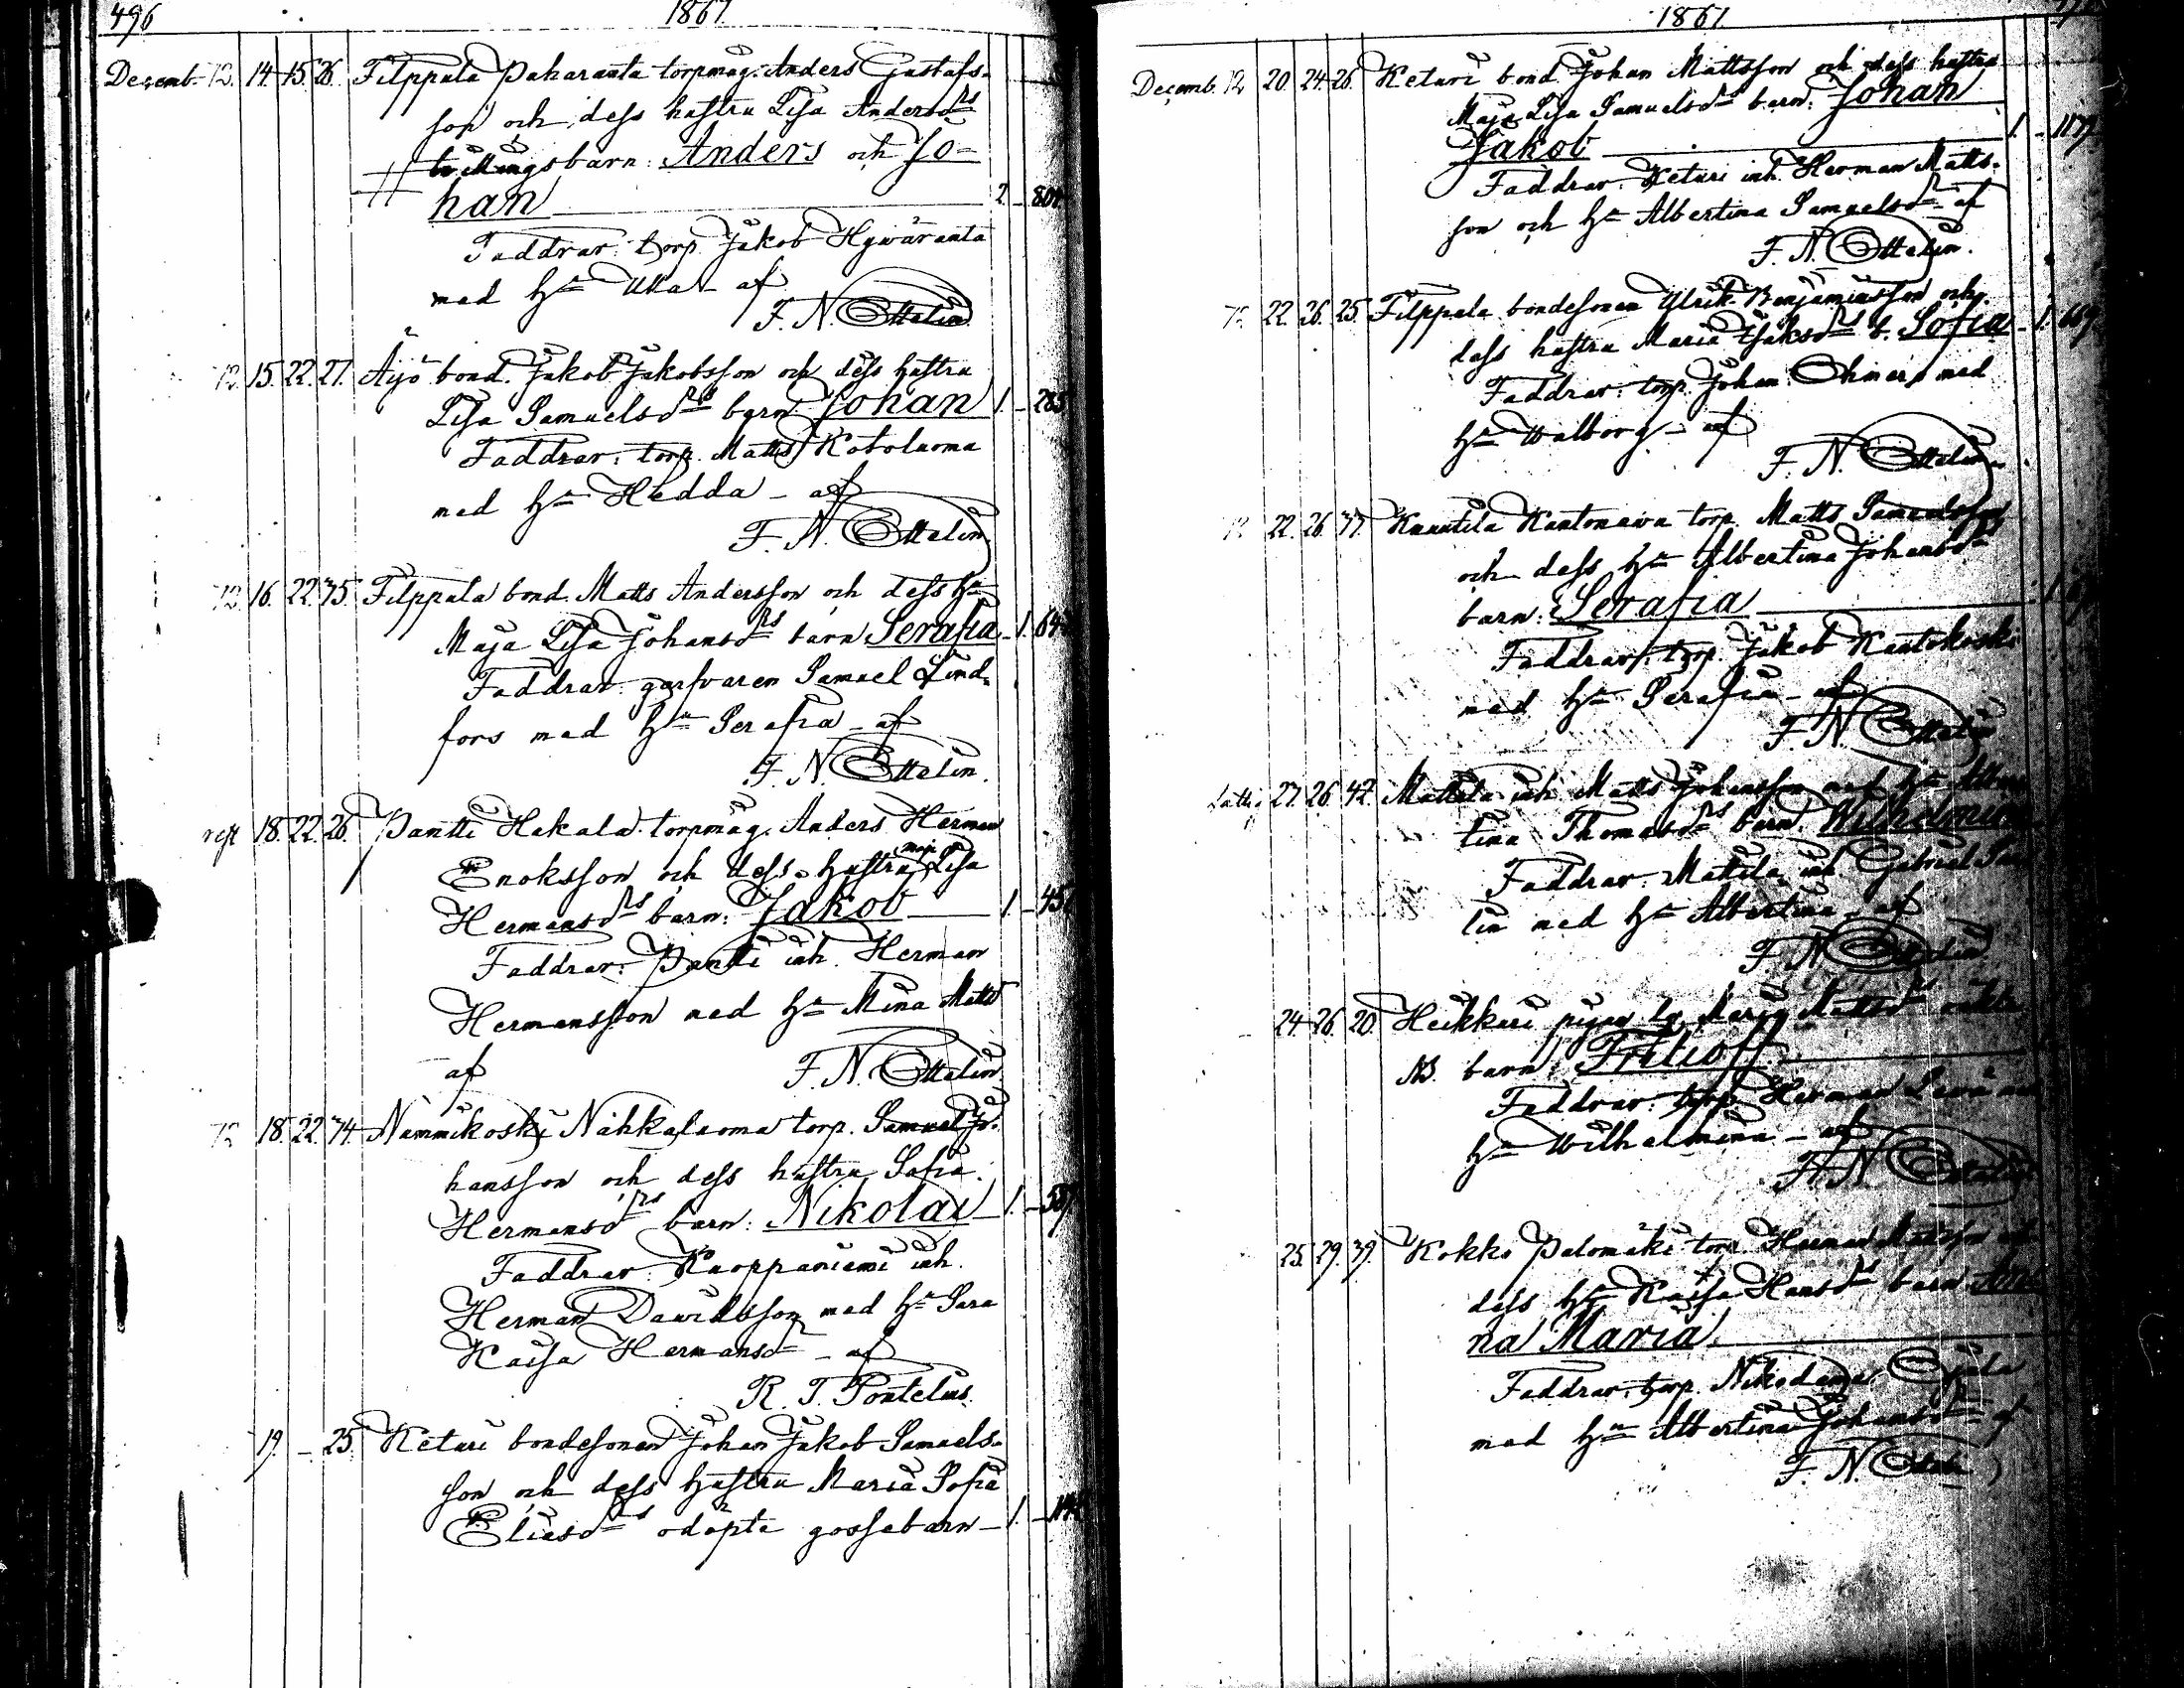 496
1861
Decemb. 12. 14 15. 26. Filppula Paharanta torpmag. Anders Gustafs-
son och dess hustru Lisa Andersdrs
tvillingsbarn: Anders och Jo-
han 2.
Faddrar: torp. Jakob Hywäranta
med hu Ulla af
F. N. Ottelin
12. 15. 22. 27. Äijö bond. Jakob Jakobsson och dess hustru
Lisa Samuelsdrs barn Johan 1. 285
Faddrar: torp. Matts Kotoluoma
med hu Hedda - af
F. N. Ottelin
12. 16. 22. 75. Filppula bond. Matts Andersson och dess hu
Maja Lisa Johansdrs barn Serafia 1.
Faddrar: garfvaren Samuel Lind-
fors med hu Serafia - af
F. N. Ottelin.
18. 22. 26. Pantti Hakala torpmag. Anders Herman
Enoksson och dess hustru Maja Lisa
Hermansdrs barn: Jakob 1.
Faddrar: Pantti inh. Herman
Hermansson med hu Mina Matts
af F. N. Ottelin
12 18. 22. 74. Nämmikoski Nahkaluoma torp. Samuel Jo-
hansson och dess hustru Sofia
Hermansdrs barn: Nikolai 1.
Faddrar: Kuoppaniemi inh.
Herman Davidsson med hu Sara
Kaisa Hermansdr - af
R. T. Pontelius.
19. - 25. Keturi bondesonen Johan Jakob Samuels-
son och dess hustru Maria Sofia
Eliasdrs odöpte gossebarn - 1.
1861
Decemb. 12 20. 24. 26. Keturi bond. Johan Mattsson och dess hustru
Maja Lisa Samuelsdrs barn: Johan
Jakob 1.
Faddrar: Keturi inh. Herman Matts-
son och hu Albertina Samuelsdr af
F. N. Ottelin.
12. 22. 26. 25. Filppula bondesonen Ulrik Benjaminsson och
dess hustru Maria Isaksdrs b. Sofia 1.
Faddrar: torp. Johan med
hu Walborg - af
F. N. Ottelin
12 22. 26. 77. Knuutila Kantonawa torp. Matts Samuelsson
och dess hu Albertina Johansdrs
barn: Serafia
Faddrar: torp. Jakob Kantokoski
med hu Serafia - af
F. N. Ottelin
27. 26. 42. Mattila inh. Matts Johansson med hu
tina Thomasdrs barn
Faddrar: Mattila inh. Gabriel
lin med hu Albertina af
F. N. Ottelin
24. 26. 20. Heikkuri pigan Maria Mattsdrs
barn Frithioff
Faddrar: torp. Herman
hu Wilhelmina - af
F. N. Ottelin
25. 29. 39. Kokko Palomäki torp. Herman
dess hu Kaisa Hansdrs barn
na Maria
Faddrar: torp. Nikodemus Ojala
med hu Albertina Johansdr af
F. N. Ottelin